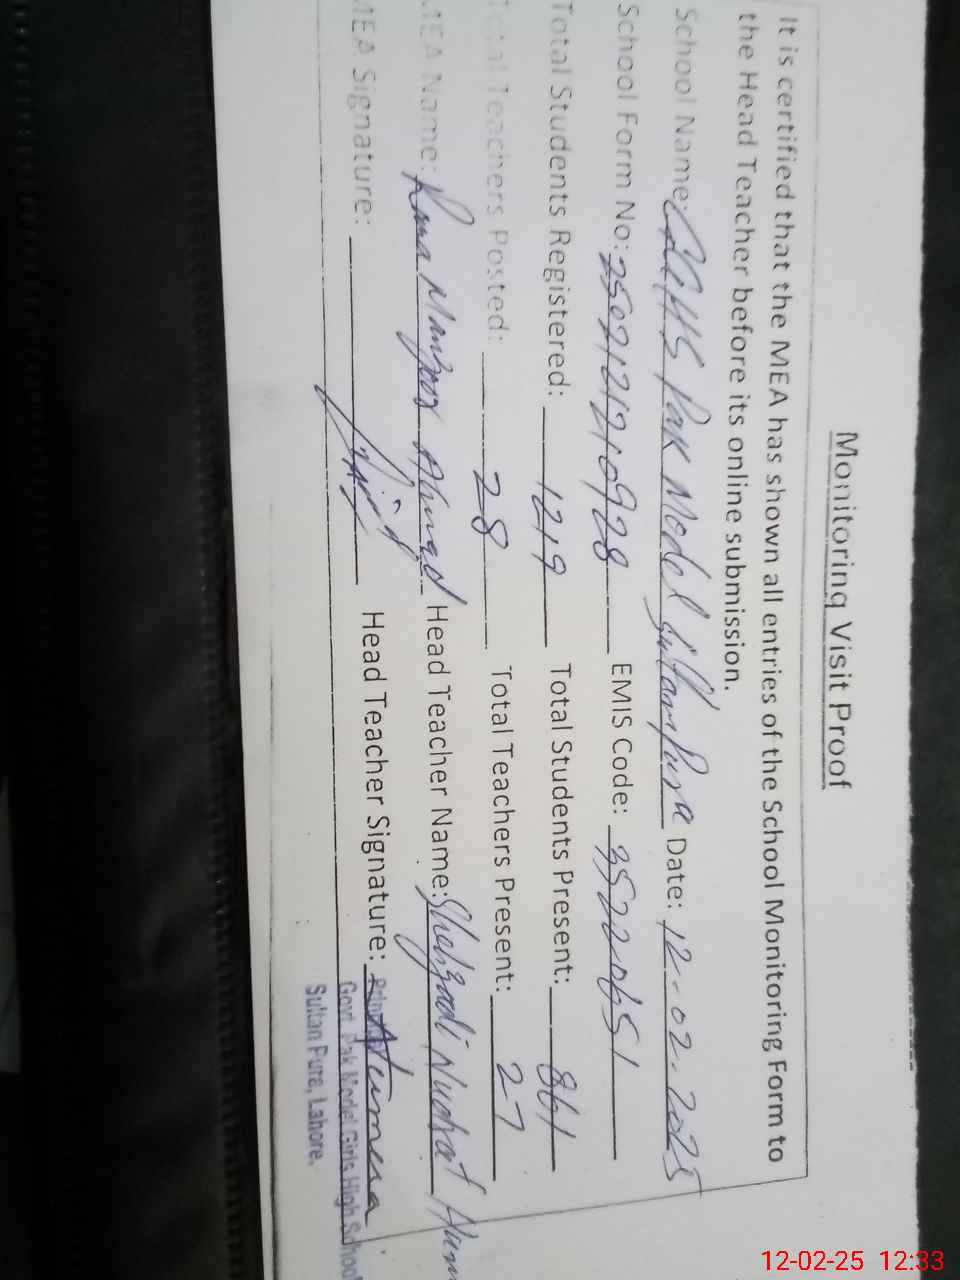 Monitoring Visit Proof
It is certified that the MEA has shown all entries of the School Monitoring Form to
the Head Teacher before its online submission.
School Name: GGHS Pak Model Sultanpura Date: 12-02-2025
School Form No: 2502121210928 EMIS Code:
Total Students Registered: 1219 Total Students Present: 861
Total Teachers Posted: 28 Total Teachers Present: 27
MEA Name: Rana Manzoor Ahmad Head Teacher Name: Shehzadi Nudrat
MEA Signature: Head Teacher Signature:
Principal
Govt. Pak Model Girls High School
Sultan Pura, Lahore.
12-02-25 12:33